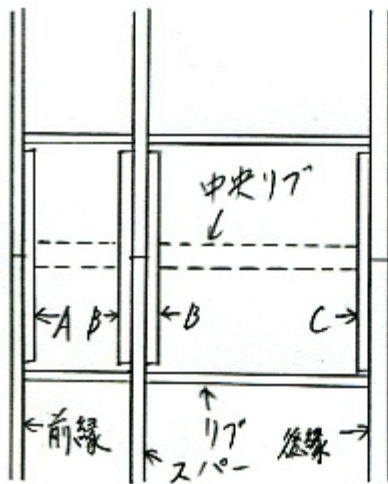 中央リブ
A B B C
前縁 リブ 後縁
スパー